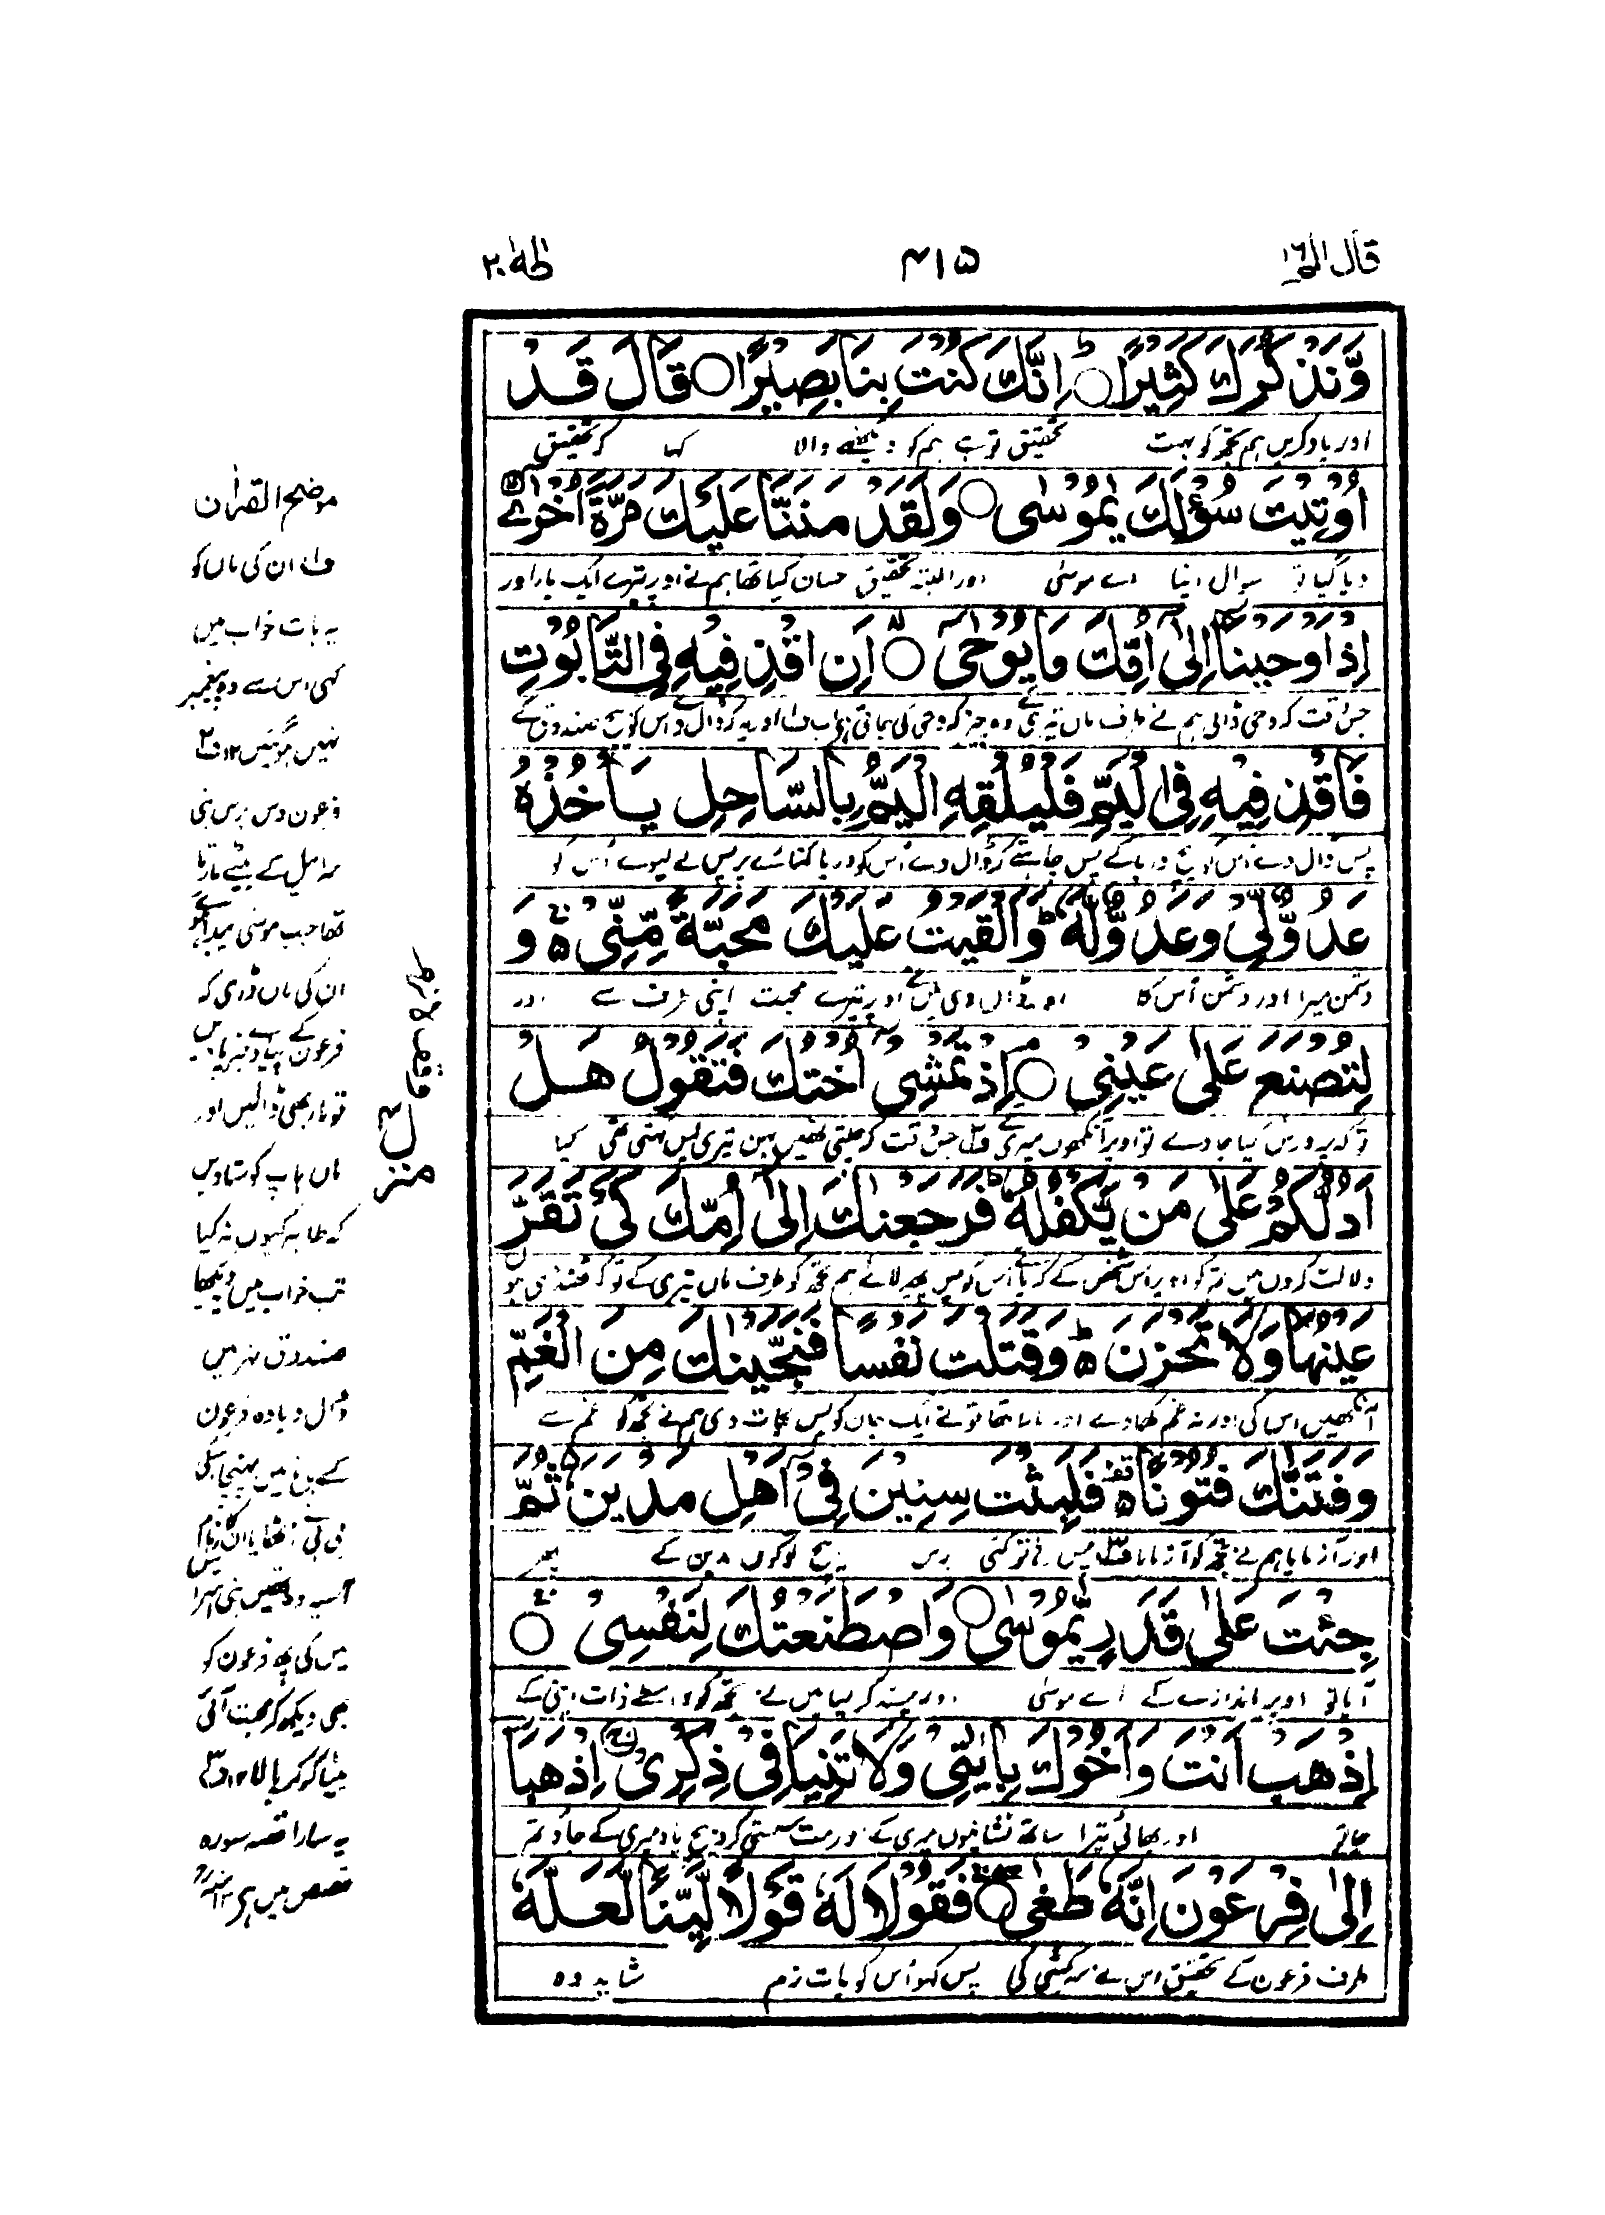 قال الم ١٦
۴۱۵
طٰهٰ ۲۰
وَّنَذْكُرَكَ كَثِيْرًا ○ ط اِنَّكَ كُنْتَ بِنَا بَصِيْرًا ○ قَالَ قَدْ
اور یاد کریں ہم تجھ کو بہت تحقیق تو ہے ہم کو دیکھنے والا کہا کہ تحقیق
اُوْتِيْتَ سُؤْلَكَ يٰمُوْسٰى ○ وَلَقَدْ مَنَنَّا عَلَيْكَ مَرَّةً اُخْرٰىٓ
دیا گیا تو سوال اپنا اے موسیٰ اور البتہ تحقیق احسان کیا تھا ہم نے اوپر تیرے ایک بار اور
اِذْ اَوْحَيْنَآ اِلٰٓى اُمِّكَ مَا يُوْحٰٓى ○ لا اَنِ اقْذِفِيْهِ فِى التَّابُوْتِ
جس وقت کہ وحی ڈالی ہم نے طرف ماں تیری کے وہ چیز کہ وحی کی جاتی ہے اب ف۱ اور یہ کہ ڈال دے اس کو بیچ صندوق کے
فَاقْذِفِيْهِ فِى الْيَمِّ فَلْيُلْقِهِ الْيَمُّ بِالسَّاحِلِ يَاْخُذْهُ
پس ڈال دے اس کو بیچ دریا کے پس چاہیے کہ ڈال دے اُس کو دریا کنارے پر پس لے لیوے اُس کو
عَدُوٌّ لِّىْ وَعَدُوٌّ لَّهٗ ط وَاَلْقَيْتُ عَلَيْكَ مَحَبَّةً مِّنِّىْ ۵ ج وَ
دشمن میرا اور دشمن اُس کا اور ڈال دی میں نے اوپر تیرے محبت اپنی طرف سے اور
لِتُصْنَعَ عَلٰى عَيْنِىْ ○ م اِذْ تَمْشِىْٓ اُخْتُكَ فَتَقُوْلُ هَلْ
تو کہ پرورش کیا جاوے تو اوپر آنکھوں میری کے ف۲ جس وقت کہ چلتی تھیں بہن تیری پس کہتی تھی کیا
اَدُلُّكُمْ عَلٰى مَنْ يَّكْفُلُهٗ ط فَرَجَعْنٰكَ اِلٰٓى اُمِّكَ كَىْ تَقَرَّ
دلالت کروں میں تم کو اوپر اس شخص کے کہ پالے اُس کو پس پھیر لائے ہم تجھ کو طرف ماں تیری کے تو کہ ٹھنڈی ہوں
عَيْنُهَا وَلَا تَحْزَنَ ۵ ط وَقَتَلْتَ نَفْسًا فَنَجَّيْنٰكَ مِنَ الْغَمِّ
آنکھیں اس کی اور نہ غم کھاوے اور مارا تھا تو نے ایک جان کو پس نجات دی ہم نے تجھ کو غم سے
وَفَتَنّٰكَ فُتُوْنًا ۵ قف فَلَبِثْتَ سِنِيْنَ فِىْٓ اَهْلِ مَدْيَنَ ۵ ثُمَّ
اور آزمایا ہم نے تجھ کو آزمانا ف۳ پس رہا تو کئی برس بیچ لوگوں مدین کے پھر
جِئْتَ عَلٰى قَدَرٍ يّٰمُوْسٰى ○ وَاصْطَنَعْتُكَ لِنَفْسِىْ ○ ج
آیا تو اوپر اندازے کے اے موسیٰ اور پسند کر لیا میں نے تجھ کو واسطے ذات اپنی کے
اِذْهَبْ اَنْتَ وَاَخُوْكَ بِاٰيٰتِىْ وَلَا تَنِيَا فِىْ ذِكْرِىْ اِذْهَبَآ
جا تو اور بھائی تیرا ساتھ نشانیوں میری کے اور مت سستی کرو بیچ یاد میری کے جاؤ تم
اِلٰى فِرْعَوْنَ اِنَّهٗ طَغٰى ○ فَقُوْلَا لَهٗ قَوْلًا لَّيِّنًا لَّعَلَّهٗ
طرف فرعون کے تحقیق اس نے سرکشی کی پس کہو اُس کو بات نرم شاید وہ
وقف لازم
منزل ۴
موضح القرآن
ف۱ ان کی ماں کو
یہ بات خواب میں
کہی اس سے وہ پیغمبر
نہیں ہوئیں ۱۲ ف۲
فرعون دس برس بنی
اسرائیل کے بیٹے مارتا
تھا جب موسیٰ پیدا ہوئے
ان کی ماں ڈری کہ
فرعون کے پیادے خبر پاویں
تو مار بھی ڈالیں اور
ماں باپ کو ستاویں
کہ ظاہر کیوں نہ کیا
تب خواب میں دیکھا
صندوق نہر میں
ڈال دیا وہ فرعون
کے باغ میں پہنچا اسکی
بی بی نے اٹھایا ان کا نام
آسیہ وہ تھیں بنی اسرائیل
میں کی پھر فرعون کو
بھی دیکھ کر محبت آئی
بیٹا کر کر پالا ۱۲ ف۳
یہ سارا قصہ سورہ
قصص میں ہے ۱۲